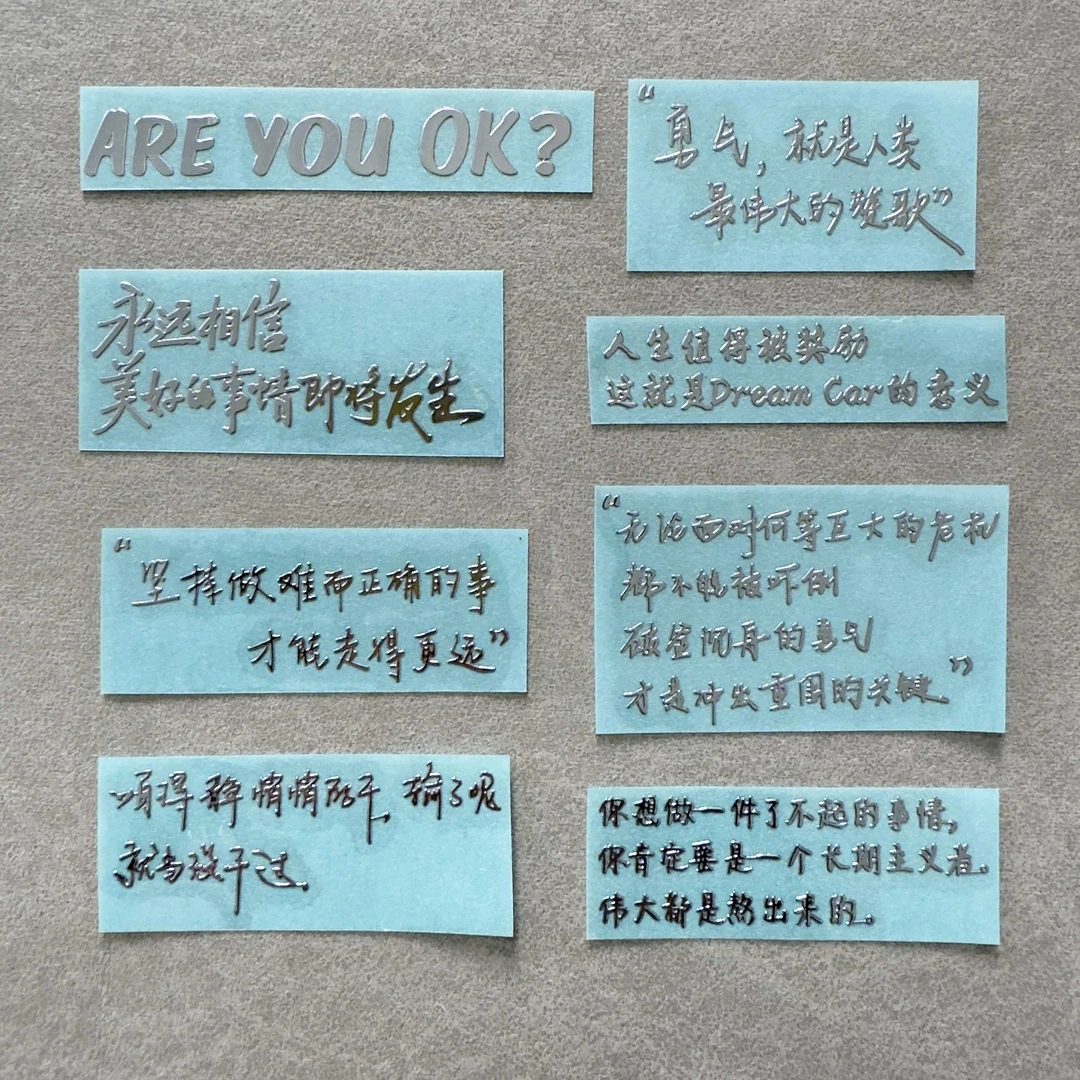 ARE YOU OK?
“勇气，就是人类
最伟大的赞歌”
永远相信
美好的事情即将发生
人生值得被奖励
这就是Dream Car的意义
“坚择做难而正确的事
才能走得更远”
“无论面对何等巨大的危机
都不能被吓倒
破釜沉舟的勇气
才是冲出重围的关键”
悄悄的干，输了呢
就当没干过。
你想做一件了不起的事情，
你肯定要是一个长期主义者。
伟大都是熬出来的。